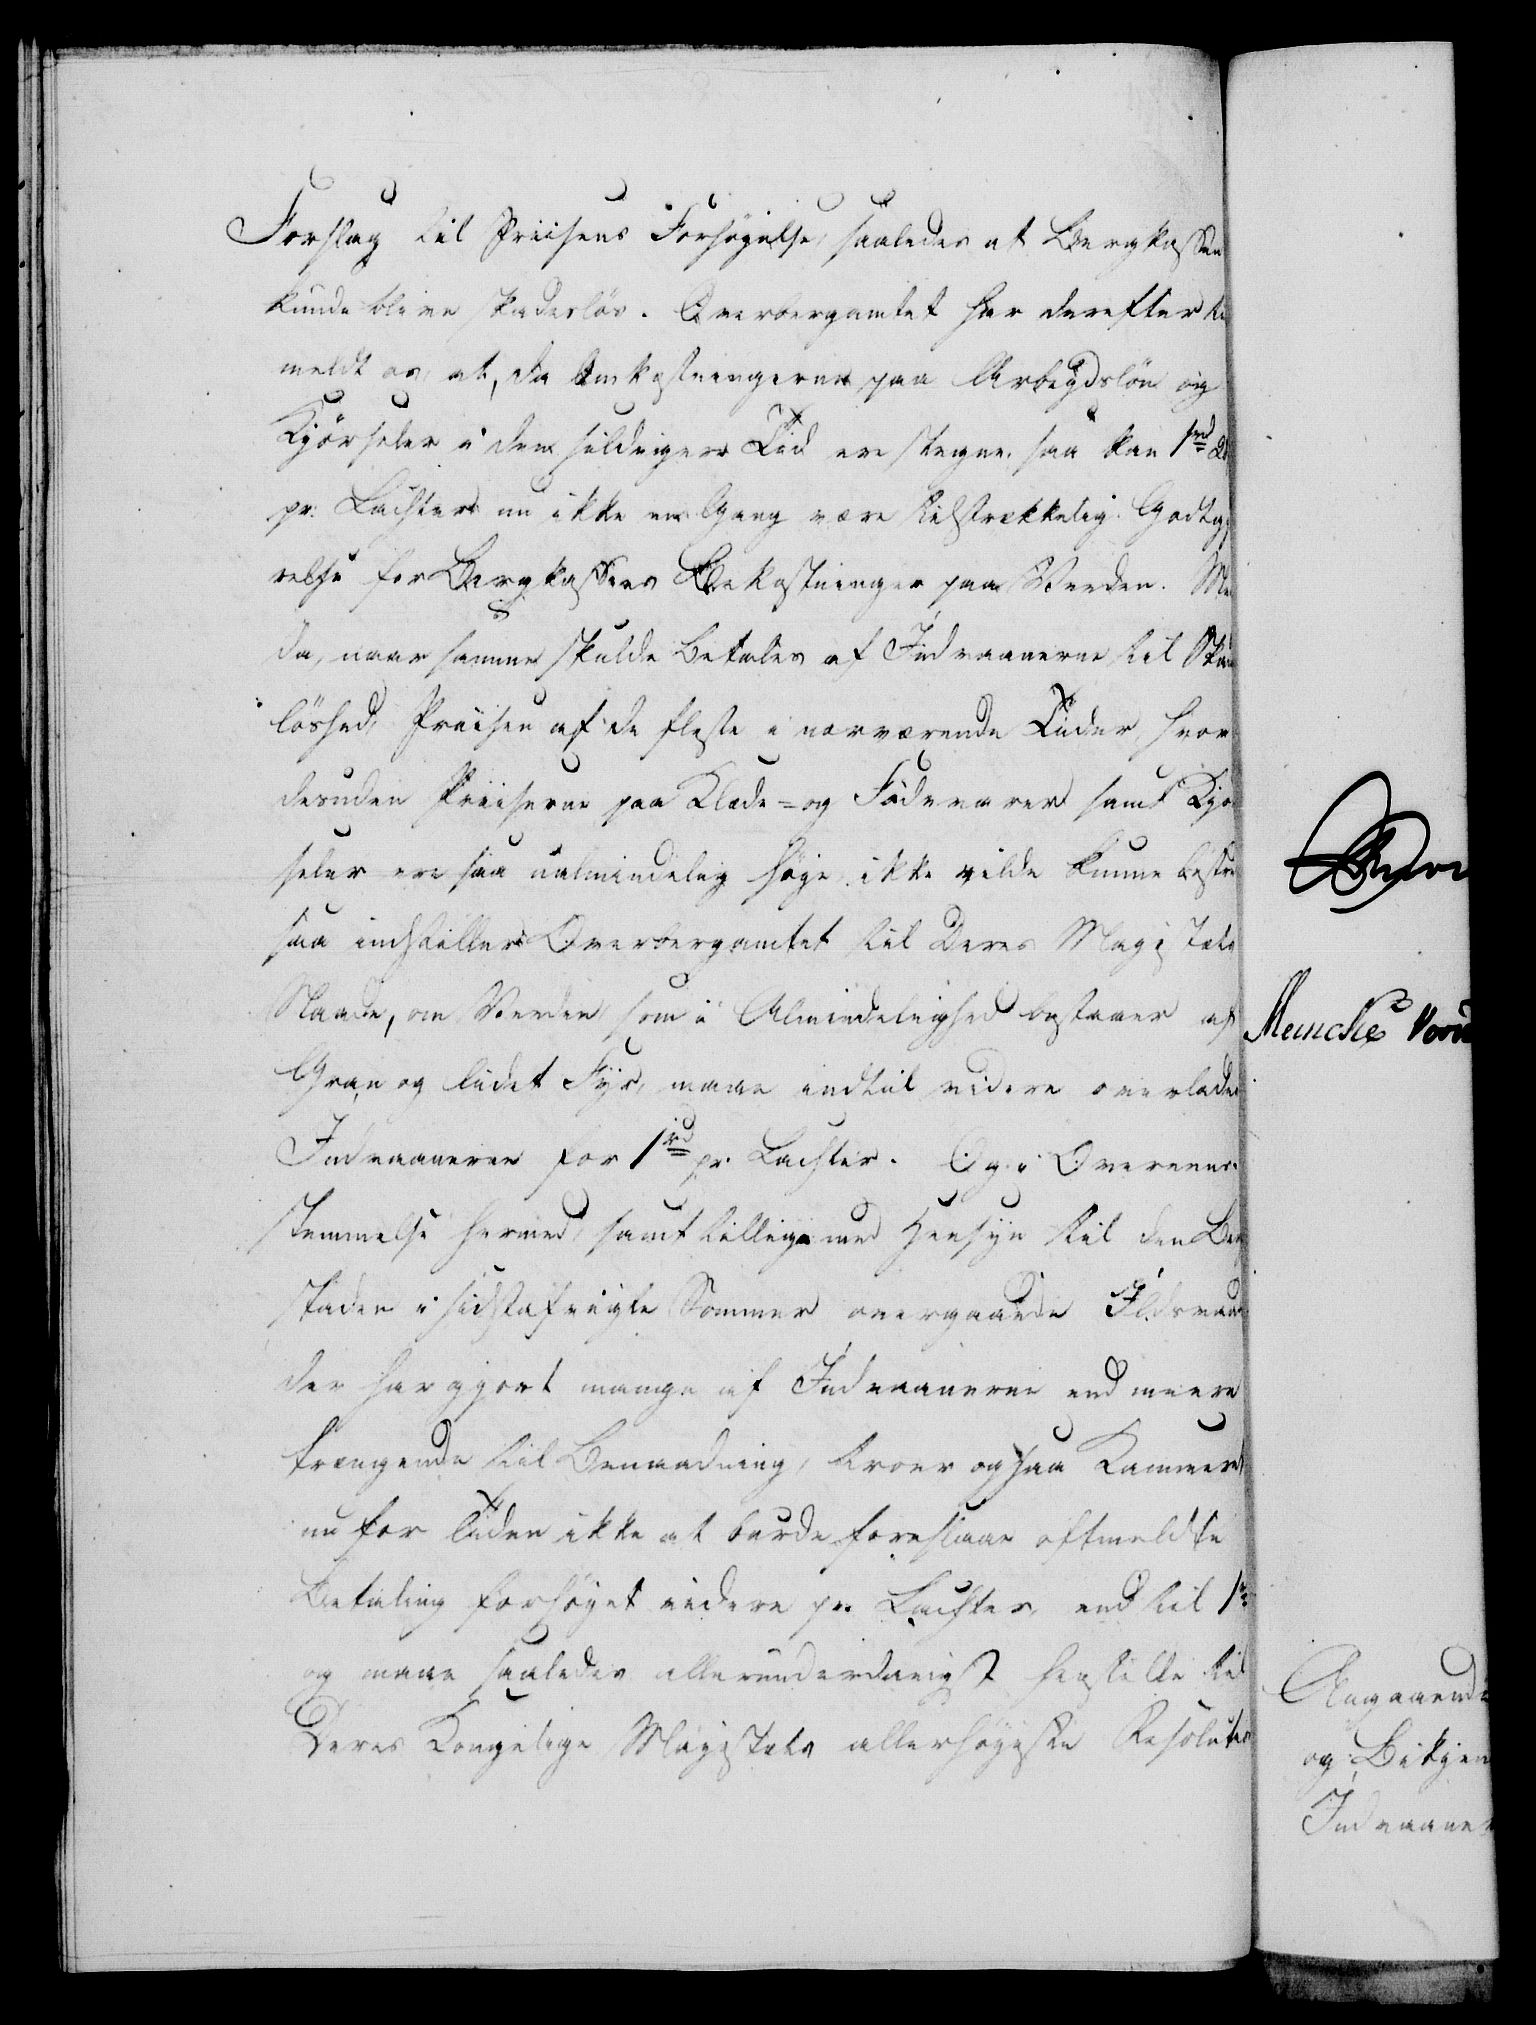 Forslag til Priisens Forhøjelse, saaledes at Bergkassen
kunde blive skadesløs. Overbergamtet har derefter
meldt os, at, da Omkostningerne paa Arbeydsløn og
Kjørseler i den sildigere Tid ere stegne, saa kan 1 rd
pr. Lachter nu ikke en Gang være tilstrækkelig Godtgjø
relse for Bergkassens Bekostninger paa Veeden. Men
da, naar samme skulde betales af Indvaanerne til Skades
løshed, Priisen af de fleste i nærværende Tider, hvor
desuden Priiserne paa Klæde- og Födevarer samt Kjør
seler ere saa ualmindelig høje, ikke vilde kunne bestri
saa indstiller Overbergamtet til Deres Majestæts
Naade, om Veeden, som i Almindelighed bestaaer af
Gran og lidet Fyr, maae indtil videre overlades
Indvaanerne for 1 rd pr. Lachter. Og i Overeens-
stemmelse hermed, samt tillige med Hensyn til den Berg
staden i sidstafvigte Sommer overgaaede Ildsvaade
der har gjort mange af Indvaanerne end meere
trængende til Benaadning, troer ogsaa Kammeret
nu for Tiden ikke at burde foreslaae oftmeldte
Betaling forhøjet videre pr. Lachter, end til 1 rd
og maae saaledes allerunderdanigst henstille til
Deres Kongelige Majestæts allerhøjeste Resolution
Munchs
Angaaende
og Bekjen
Indvaaner